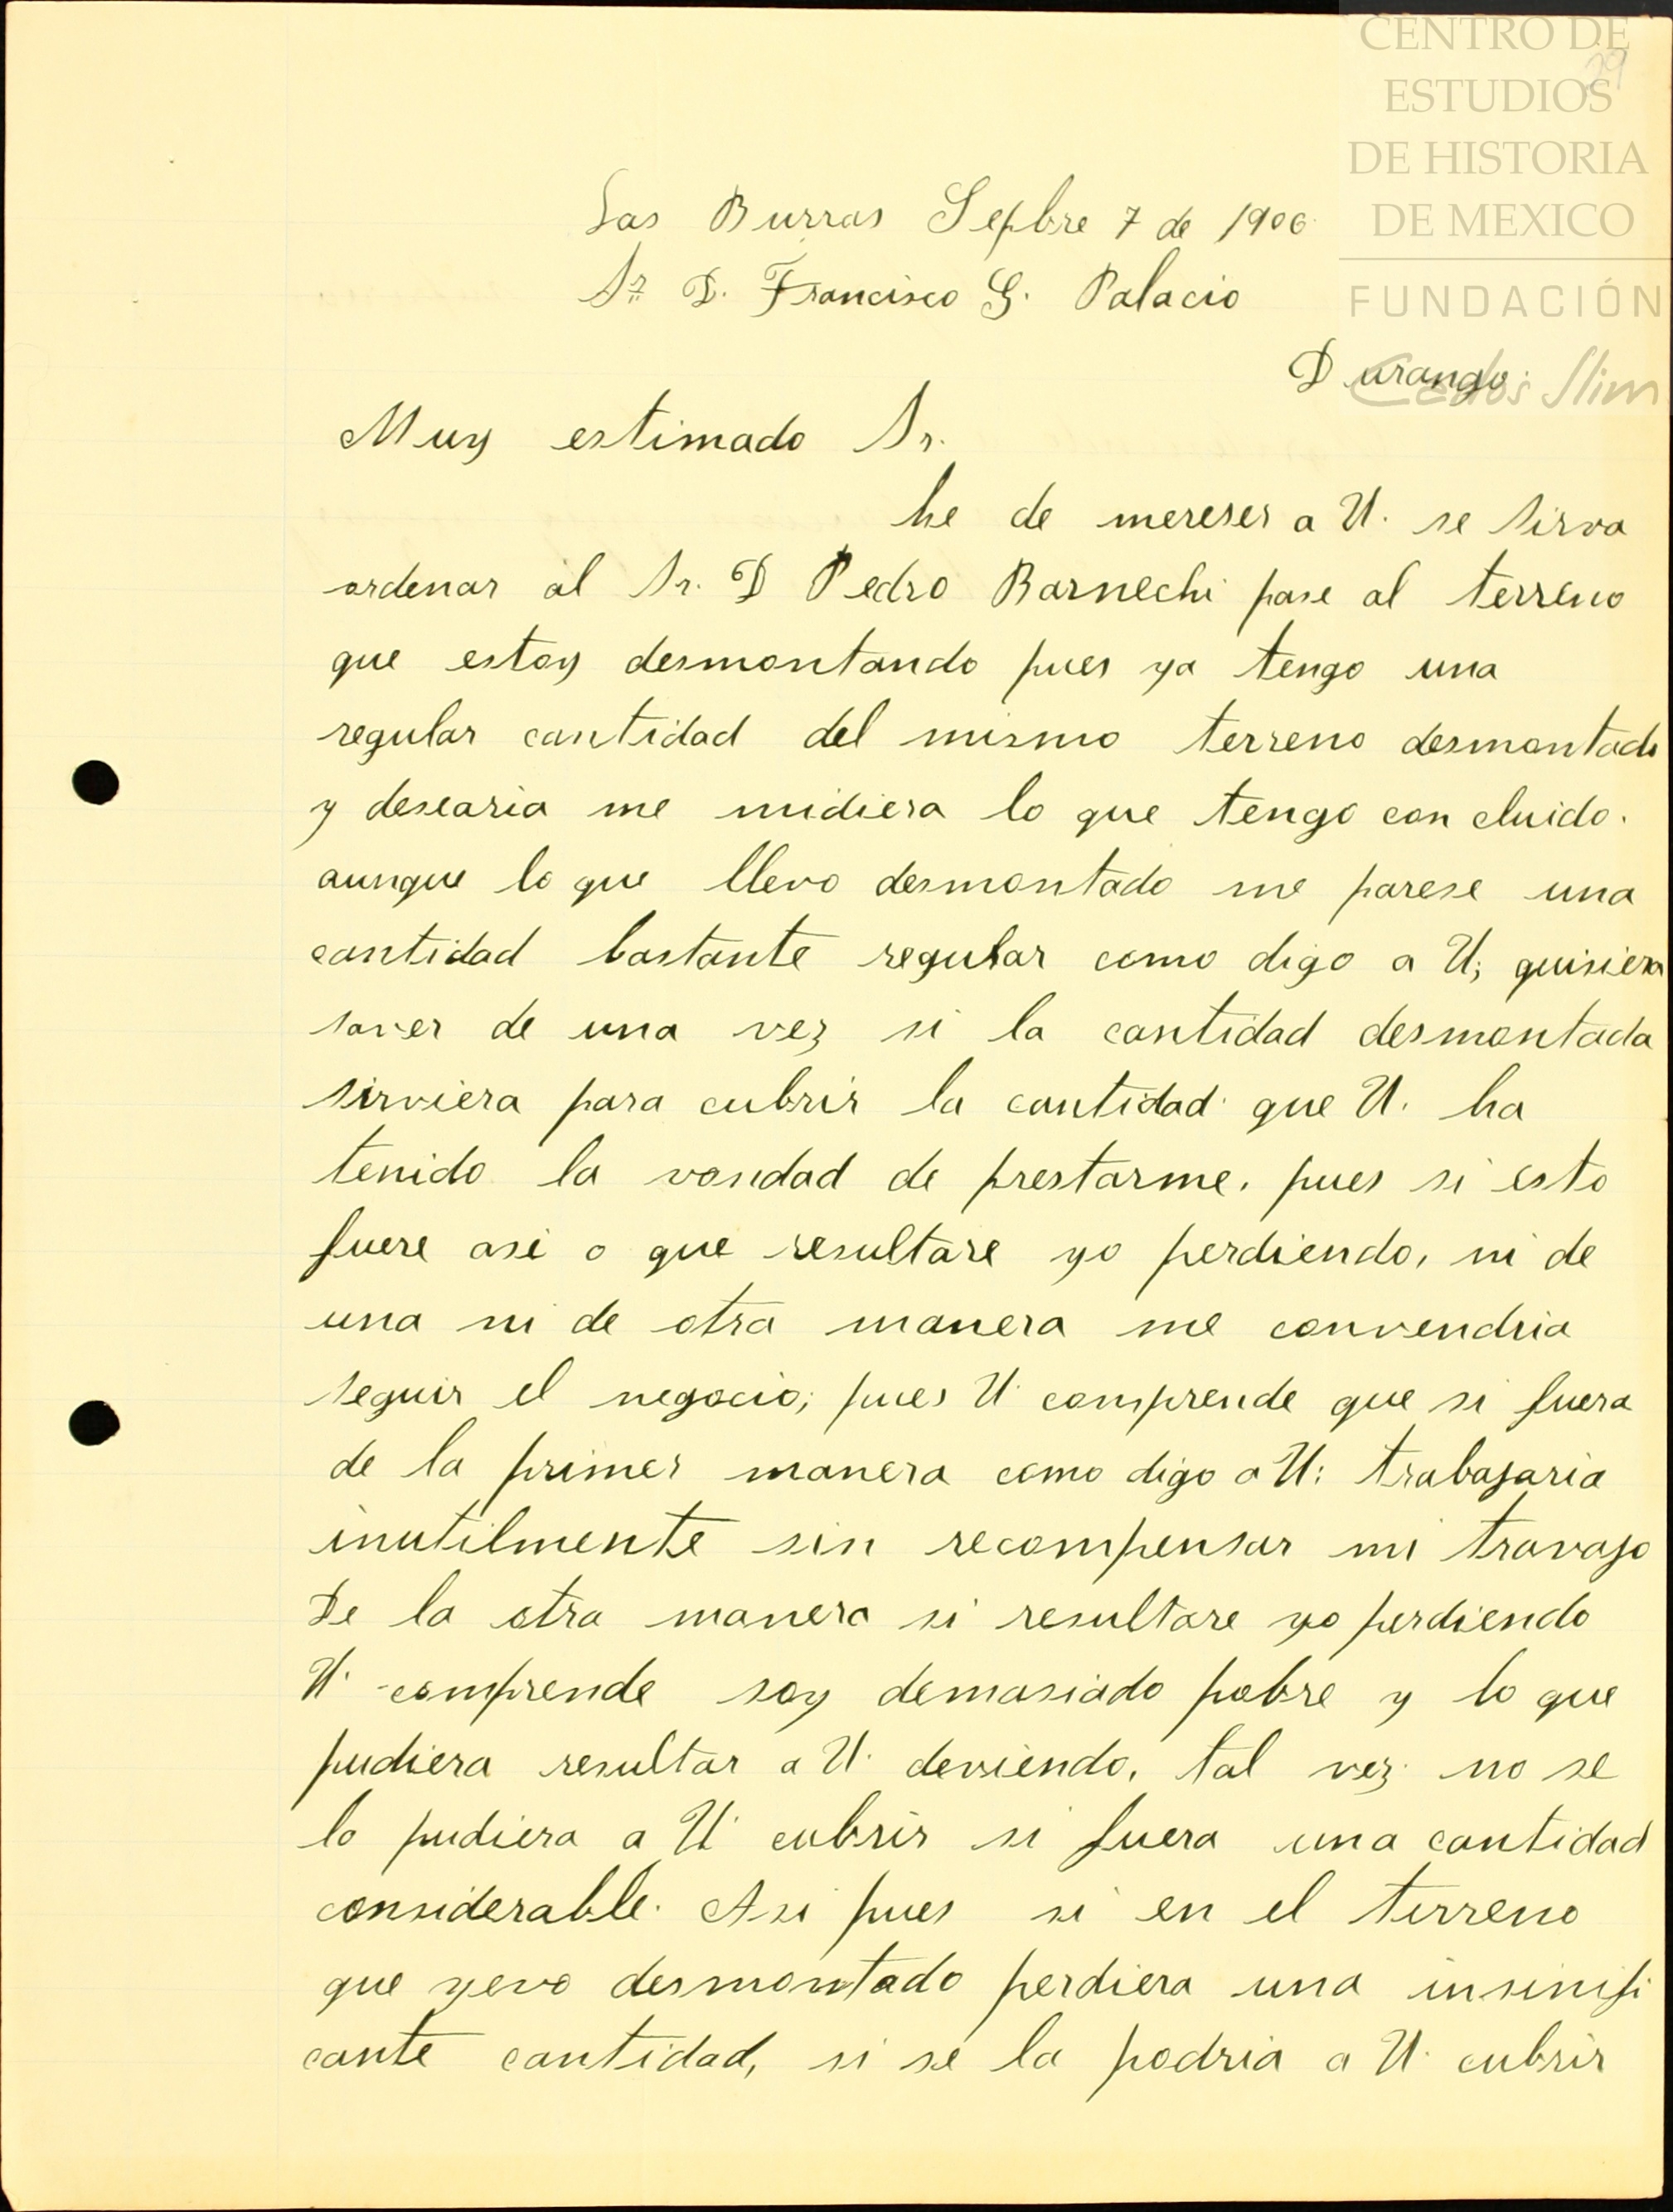 CENTRO DE
ESTUDIOS
DE HISTORIA
DE MEXICO
FUNDACIÓN
Carlos Slim
29
Las Burras Sepbre 7 de 1906
Sr. D. Francisco G. Palacio
Durango.
Muy estimado Sr.
he de mereser a U. se sirva
ordenar al Sr. D Pedro Barnechi pase al terreno
que estoy desmontando pues ya tengo una
regular cantidad del mismo terreno desmontado
y desearia me midiera lo que tengo con cluido.
aunque lo que llevo desmontado me parese una
cantidad bastante regular como digo a U; quisiera
saver de una vez si la cantidad desmontada
sirviera para cubrir la cantidad que U. ha
tenido la vondad de prestarme. pues si esto
fuere asi o que resultare yo perdiendo, ni de
una ni de otra manera me convendria
seguir el negocio; pues U. comprende que si fuera
de la primer manera como digo a U: trabajaria
inutilmente sin recompensar mi travajo
De la otra manera si resultare yo perdiendo
U. comprende soy demasiado pobre y lo que
pudiera resultar a U. deviendo, tal vez no se
lo pudiera a U. cubrir si fuera una cantidad
considerable. Asi pues si en el terreno
que yevo desmontado perdiera una insinifi
cante cantidad, si se la podria a U. cubrir